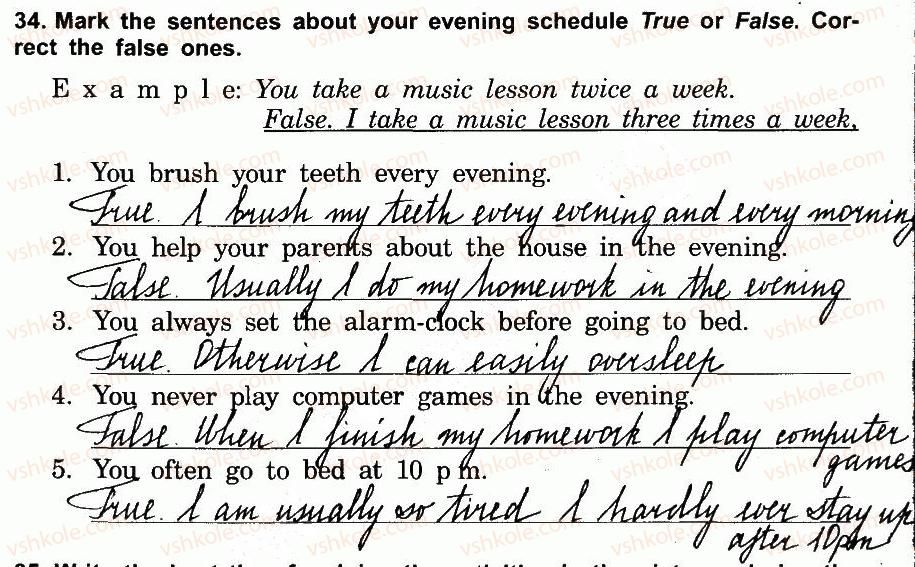 34. Mark the sentences about your evening schedule True or False. Cor-
rect the false ones.
E x a m p l e: You take a music lesson twice a week.
False. I take a music lesson three times a week,
1. You brush your teeth every evening.
True. I brush my teeth every evening and every morning
2. You help your parents about the house in the evening.
False. Usually I do my homework in the evening
3. You always set the alarm-clock before going to bed.
True. Otherwise I can easily oversleep
4. You never play computer games in the evening.
False. When I finish my homework I play computer
games
5. You often go to bed at 10 p m.
True. I am usually so tired I hardly ever stay up
after 10pm
vshkole.com